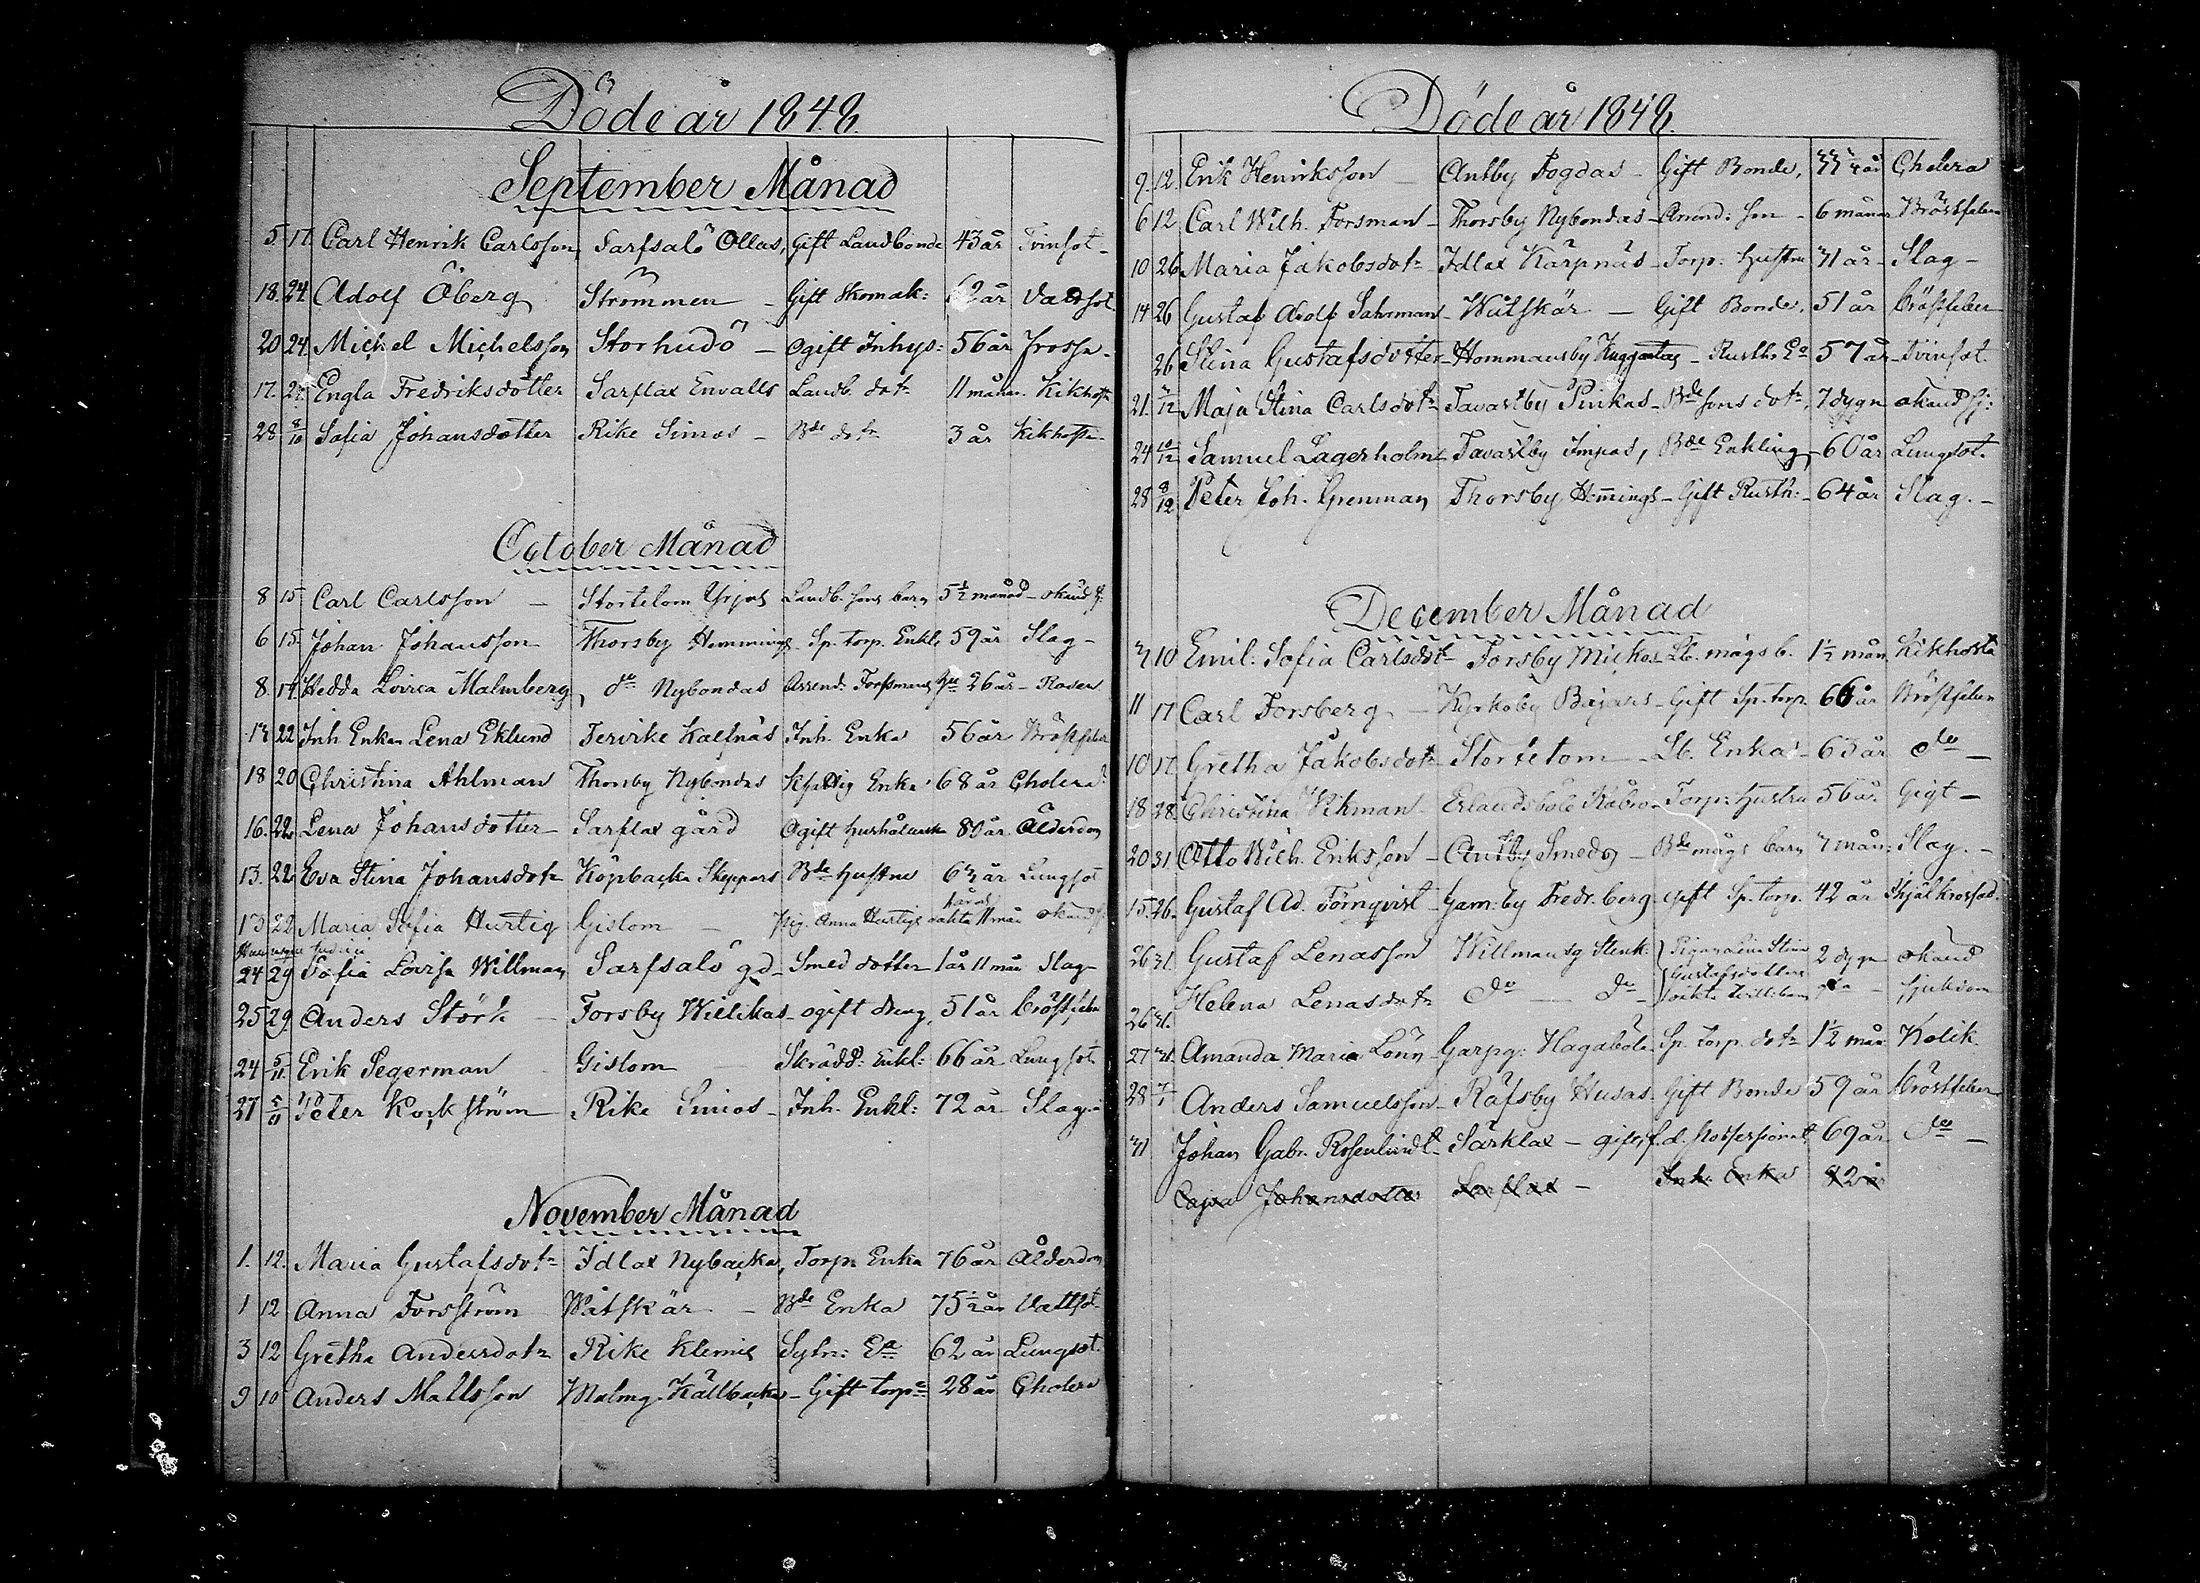 Döde år 1848.
September Månad
5. 17. Carl Henrik Carlsson, Sarfsalö Ollas, Gift Landbonde 43 år Tvinsot -
18. 24. Adolf Öberg Strömmen - Gift Skomak: 62 år Vattsot
20 24. Michel Michelsson Storhudö - Ogift Inhys: 56 år Frossa -
17. 24. Engla Fredriksdotter Sarflax Envalls Landb. dotr 11 månar. Kikhosta
28 8/10 Sofia Johansdotter Rike Simos - Bde dotr 3 år Kikhosta
October Månad
8 15 Carl Carlsson - Stortelom Yrjas Landb. sons barn 5 1/2 månad - okänd sj.
6 15. Johan Johansson Thorsby Hemmings Sp. torp. Enkl. 59 år Slag -
8. 14 Hedda Lovisa Malmberg, do Nybondas Arrend. Forssmans Hu 26 år - Rosen
13 22 Inh. Enkan Lena Eklund Tervike Kalfnäs Inh. Enka 56 år Bröstfeber
18 20 Christina Ahlman Thorsby Nybondas Enka 68 år Cholera
16. 22 Lena Johansdotter Sarflax gård Ogift Hushållerska 80 år Ålderdom
13. 22 Eva Stina Johansdotr Köpbacka Skeppars Bde Hustru 63 år Lungsot
13 22 Maria Sofia Hurtig Gislom - Pig. Anna Hurtigs oäkta 11 mån okänd sj.
24 29 Sofia Lovisa Willman Sarfsalö gd - Smed dotter 1 år 11 mån Slag -
25 29 Anders Störk - Forsby Willikas - ogift dreng, 51 år Bröstfeber
24 5/11 Erik Segerman Gislom Skrädd: Enkl: 66 år Lungsot
27 5/11 Peter Kockström - Rike Simos - Inh. Enkl: 72 år Slag -
November Månad
1. 12. Maria Gustafsdotr Idlax Nybacka, Torp. Enka 76 år Ålderdom
1 12 Anna Forsström Wåtskär - Bde Enka 75 1/2 år Vattsot
3 12 Gretha Andersdotr Rike Klemis Sytn: Ea 62 år Lungsot.
9 10 Anders Mattsson Malmg. Källbacka - Gift torpe 28 år Cholera
Döde år 1848.
9. 12. Erik Henriksson - Antby Fogdas - Gift Bonde, 33 1/2 år Cholera
6 12 Carl Wilh. Forsman - Thorsby Nybondas - Arrend: son - 6 månar Bröstfeber
10 26 Maria Jakobsdotr Idlax Kärpnäs - Torp: Hustru 31 år - Slag -
14 26 Gustaf Adolf Sahrman - Wåtskär - Gift Bonde. 51 år Bröstfeber
26 Stina Gustafsdotter - Hommansby - Rusth. Ea 57 år - Tvinsot
21. 3/12 Maja Stina Carlsdotr Tavastby Pinkas - Bde sons dotr, 7 dygn okänd sj:
24 10/12 Samuel Lagerholm Tavastby Impas, Bde Enkling, - 60 år Lungsot.
28 8/12 Peter Joh. Grenman Thorsby Hemmings - Gift Rusth: - 64 år Slag. -
December Månad
3 10 Emil. Sofia Carlsdotr Forsby Mickos Lb. mågs b. 1 1/2 mån. Kikhosta
11 17 Carl Forsberg - Kyrkoby Bajars - Gift Sp. torp. 66 år Bröstfeber
10 17. Gretha Jakobsdotr Stortetom - Lb. Enka - 63 år do -
18 28. Christina Wikman - Erlandsböle - Torp: Hustru 56 år. Gigt -
20 31 Otto Wilh. Eriksson - Antby Smeds - Bde mågs barn 3 mån: Slag. -
15. 26. Gustaf Ad. Törnqvist - Gam: by Fredr. berg - Gift Sp. torp. 42 år Ihjälkrossad.
26 31. Gustaf Lenasson Willmansg Stenk: Pigan Lena Stina 2 dygn okänd
Gustafsdotters
26 31. Helena Lenasdotr do - do - oäkta tvillingar do - sjukdom
27 31. Amanda Maria Lönn Garpg: Hagaböle Sp. Torp. dotr 1 1/2 mån Kolik
28 7/1 Anders Samuelsson - Räfsby Husas Gift Bonde 59 år Bröstfeber
31 Johan Gabr. Rosenlindt - Särklax - gift, f.d. Possessionat 69 år do -
Cajsa Johansdotter Sarflax - Inh. Enka 82 år